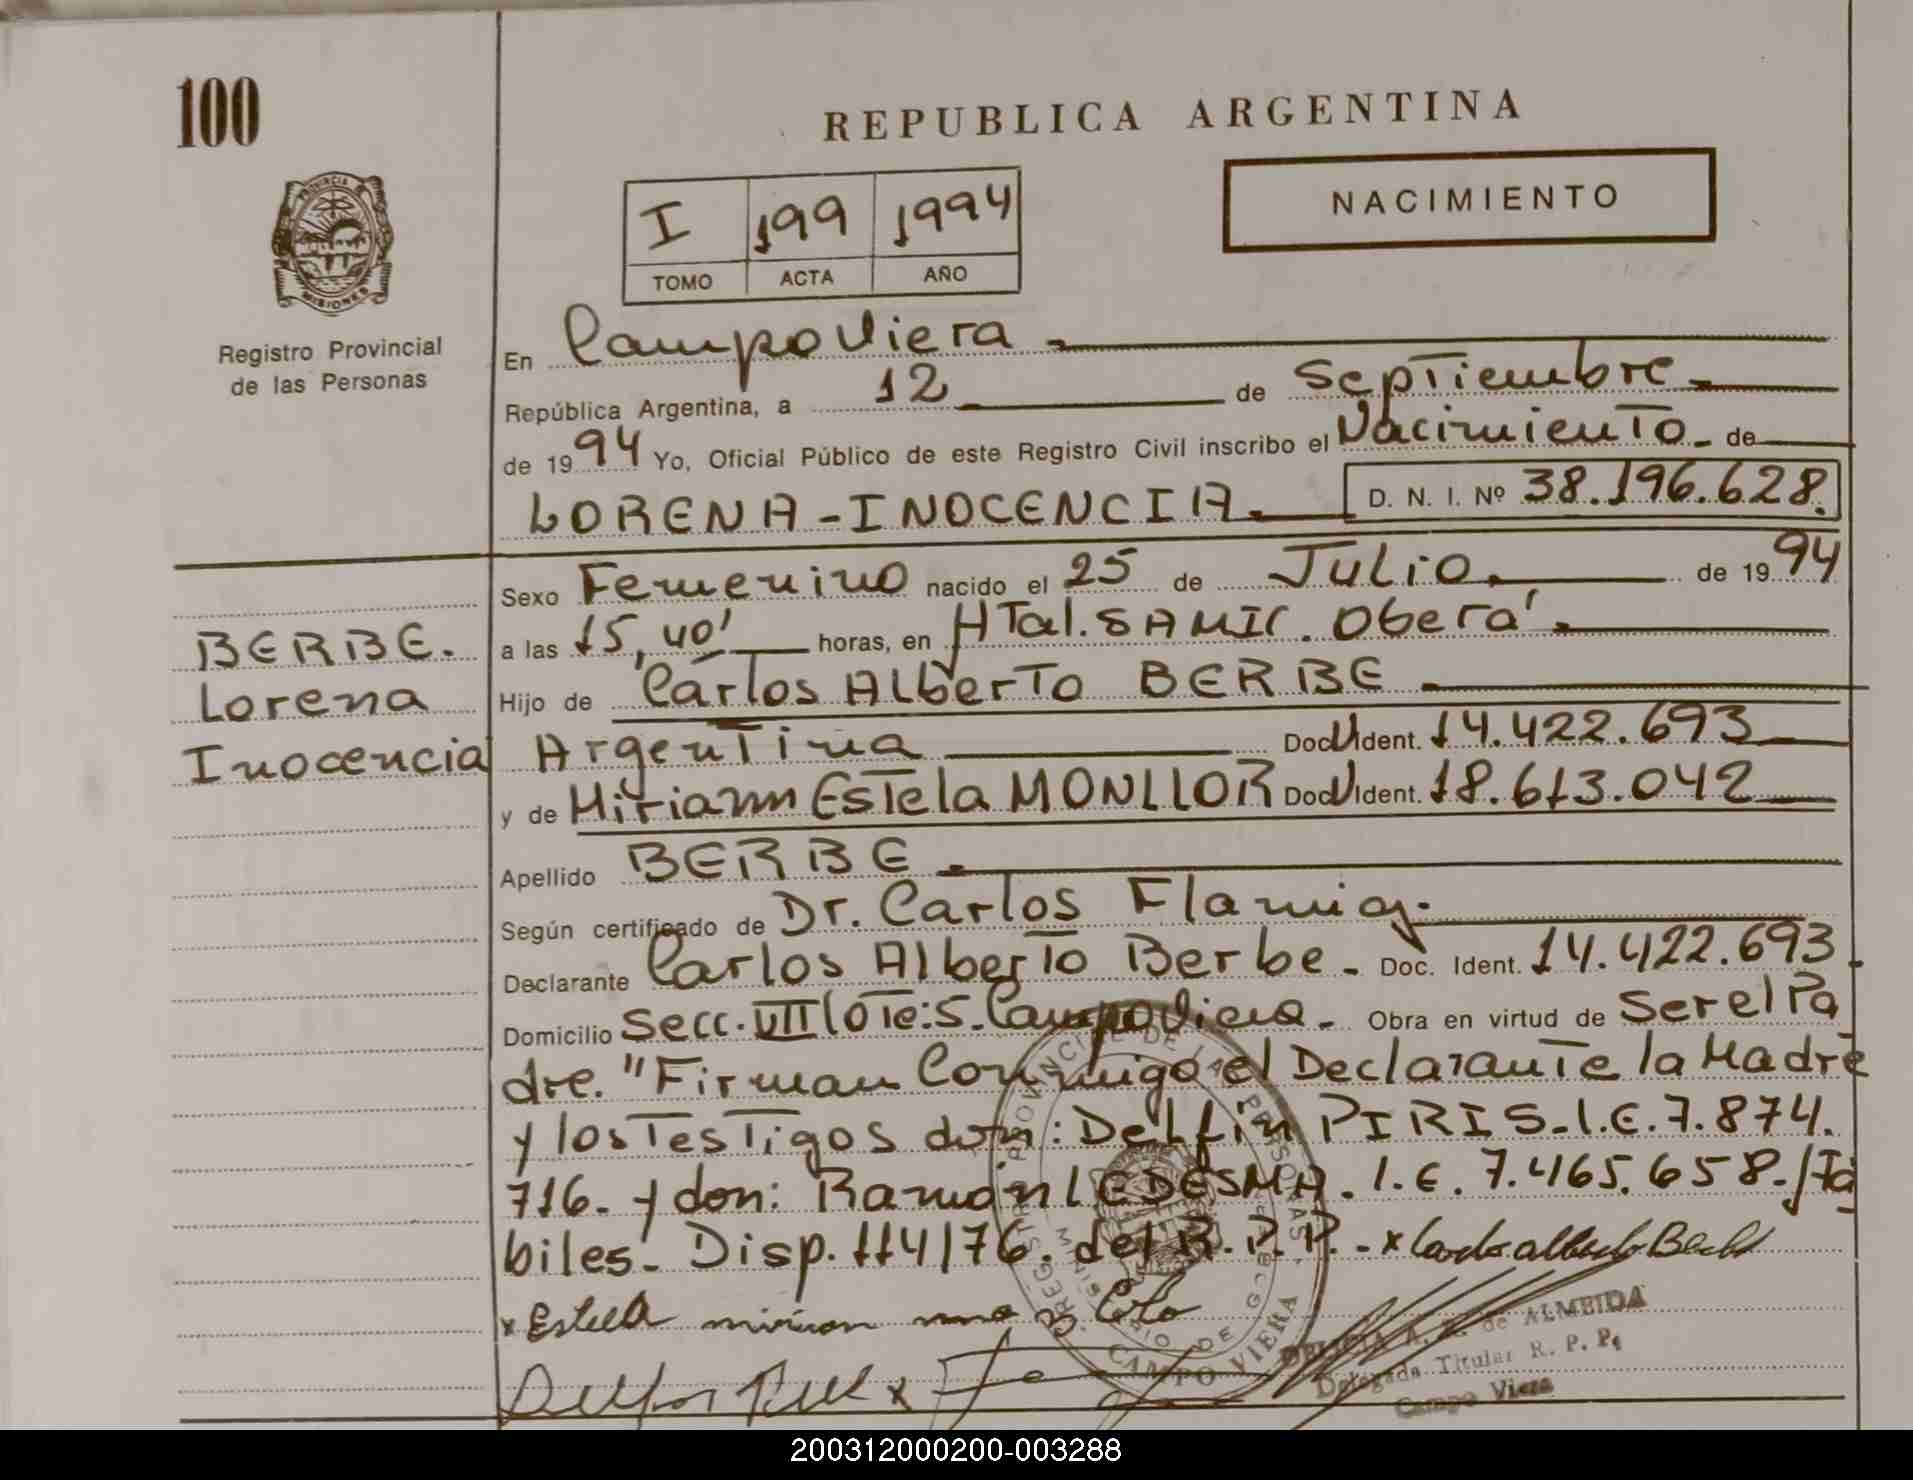 100
REPUBLICA ARGENTINA
NACIMIENTO
I 199 1994
TOMO ACTA AÑO
PROVINCIA DE
MISIONES
Registro Provincial
de las Personas
En Campo Viera
República Argentina, a 12 de Septiembre
de 1994 Yo, Oficial Público de este Registro Civil inscribo el Nacimiento de
LORENA - INOCENCIA. D. N. I. Nº 38.196.628.
Sexo Femenino nacido el 25 de Julio de 1994
a las 15,40' horas, en HTal. SAMIC. Oberá.
Hijo de Carlos Alberto BERBE
Argentina Doc. Ident. 14.422.693
y de Miriam Estela MONLLOR Doc. Ident. 18.613.042
Apellido BERBE
BERBE.
Lorena
Inocencia
Según certificado de Dr.Carlos
Declarante Carlos Alberto Berbe. Doc. Ident. 14.422.693.
Domicilio Secc. VII lote:5. Campo Viera. Obra en virtud de Ser el Pa
dre. "Firman Conmigo el Declarante la Madre
y los Testigos don: Delfin PIRIS. I.E. 7.874.
716. y don: Ramón LEDESMA. I.E. 7.465.658./Há
biles. Disp. 114/76. del R.P.P. - x Carlos Alberto
x Estela
REGISTRO PROVINCIAL DE LAS PERSONAS
MINISTERIO DE GOBIERNO
CAMPO VIERA
A. R. de ALMEIDA
Delegada Titular R. P. P.
Campo Viera
200312000200-003288